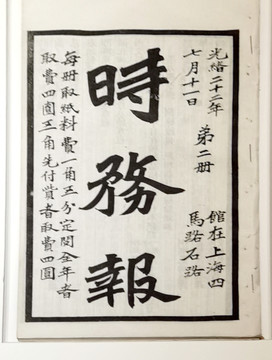 光緒二十二年
七月十一日
第二册
館在上海四
馬路石路
時務報
每册取紙料費一角五分定閱全年者
取費四圓五角先付貲者取費四圓